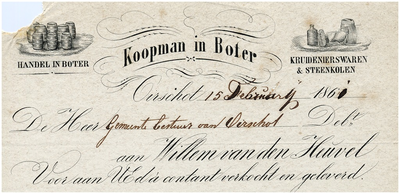 Koopman in Boter
HANDEL IN BOTER
KRUIDENIERSWAREN
& STEENKOLEN
Oirschot 15 Februarij 186
De Heer Gemeente bestuur van Oirschot Debt.
aan Willem van den Heuvel
Voor aan UEd. à contant verkocht en geleverd.